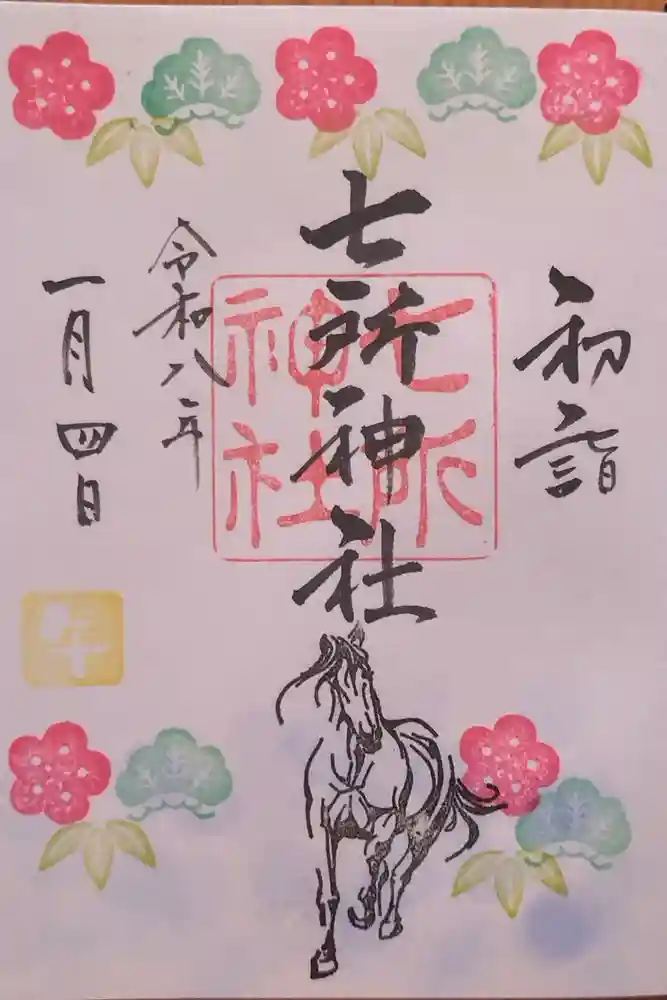 初詣
七所神社
七所神社
令和八年
一月四日
午